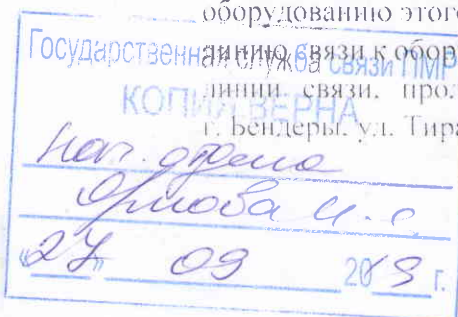 оборудованию этого
линию связи к обор
линии связи, про
г. Бендеры, ул. Тира
Государственная служба связи ПМР
КОПИЯ ВЕРНА
Нач. отдела
Орлова И. С.
«27» 09 2019 г.